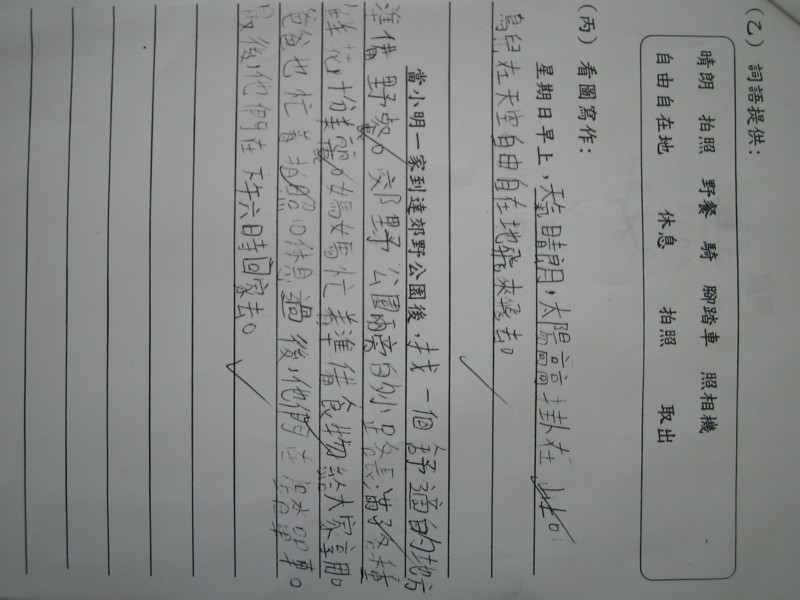 （乙）詞語提供：
晴朗 拍照 野餐 騎 腳踏車 照相機
自由自在地 休息 拍照 取出
（丙）看圖寫作：
星期日早上，天氣晴朗，太陽高高掛在
鳥兒在天空自由自在地飛來飛去。
當小明一家到達郊野公園後，找一個舒適的地方
準備野餐。郊野公園兩旁的小路長滿了各種
鮮花，十分美麗。媽媽忙着準備食物給大家享用。
爸爸也忙着拍照。休息過後，他們 腳踏車。
最後，他們在下午六時回家去。